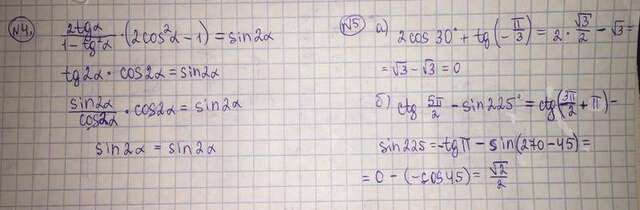 №4.
2tgα/(1-tg²α) · (2cos²α-1) = sin2α
tg2α · cos2α = sin2α
sin2α/cos2α · cos2α = sin2α
sin2α = sin2α
№5. а) 2cos30° + tg(-π/3) = 2·√3/2 - √3 =
= √3 - √3 = 0
б) ctg 5π/2 - sin225° = ctg(3π/2 + π) -
sin225 = -tgπ - sin(270-45) =
= 0 - (-cos45) = √2/2